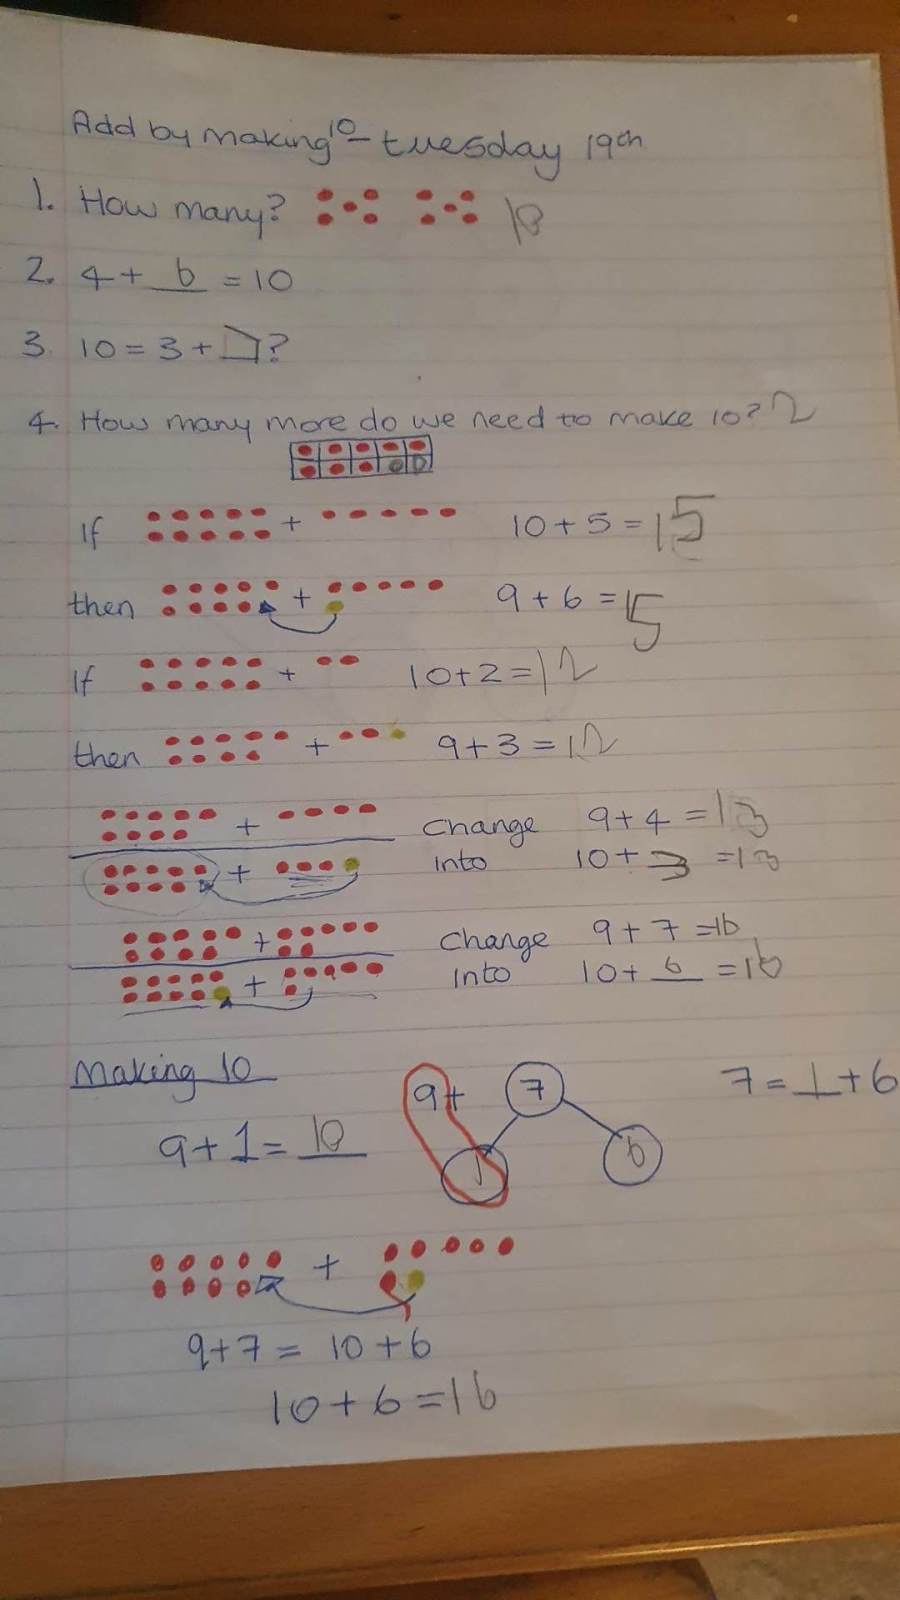 Add by making 10 - tuesday 19th
1. How many? 10
2. 4 + 6 = 10
3. 10 = 3 + 7?
4. How many more do we need to make 10? 2
If + 10 + 5 = 15
then + 9 + 6 = 15
If + 10 + 2 = 12
then + 9 + 3 = 12
+ change 9 + 4 = 13
+ into 10 + 3 = 13
+ change 9 + 7 = 16
+ into 10 + 6 = 16
Making 10 9 + 7 7 = 1 + 6
9 + 1 = 10 1 6
+
9 + 7 = 10 + 6
10 + 6 = 16